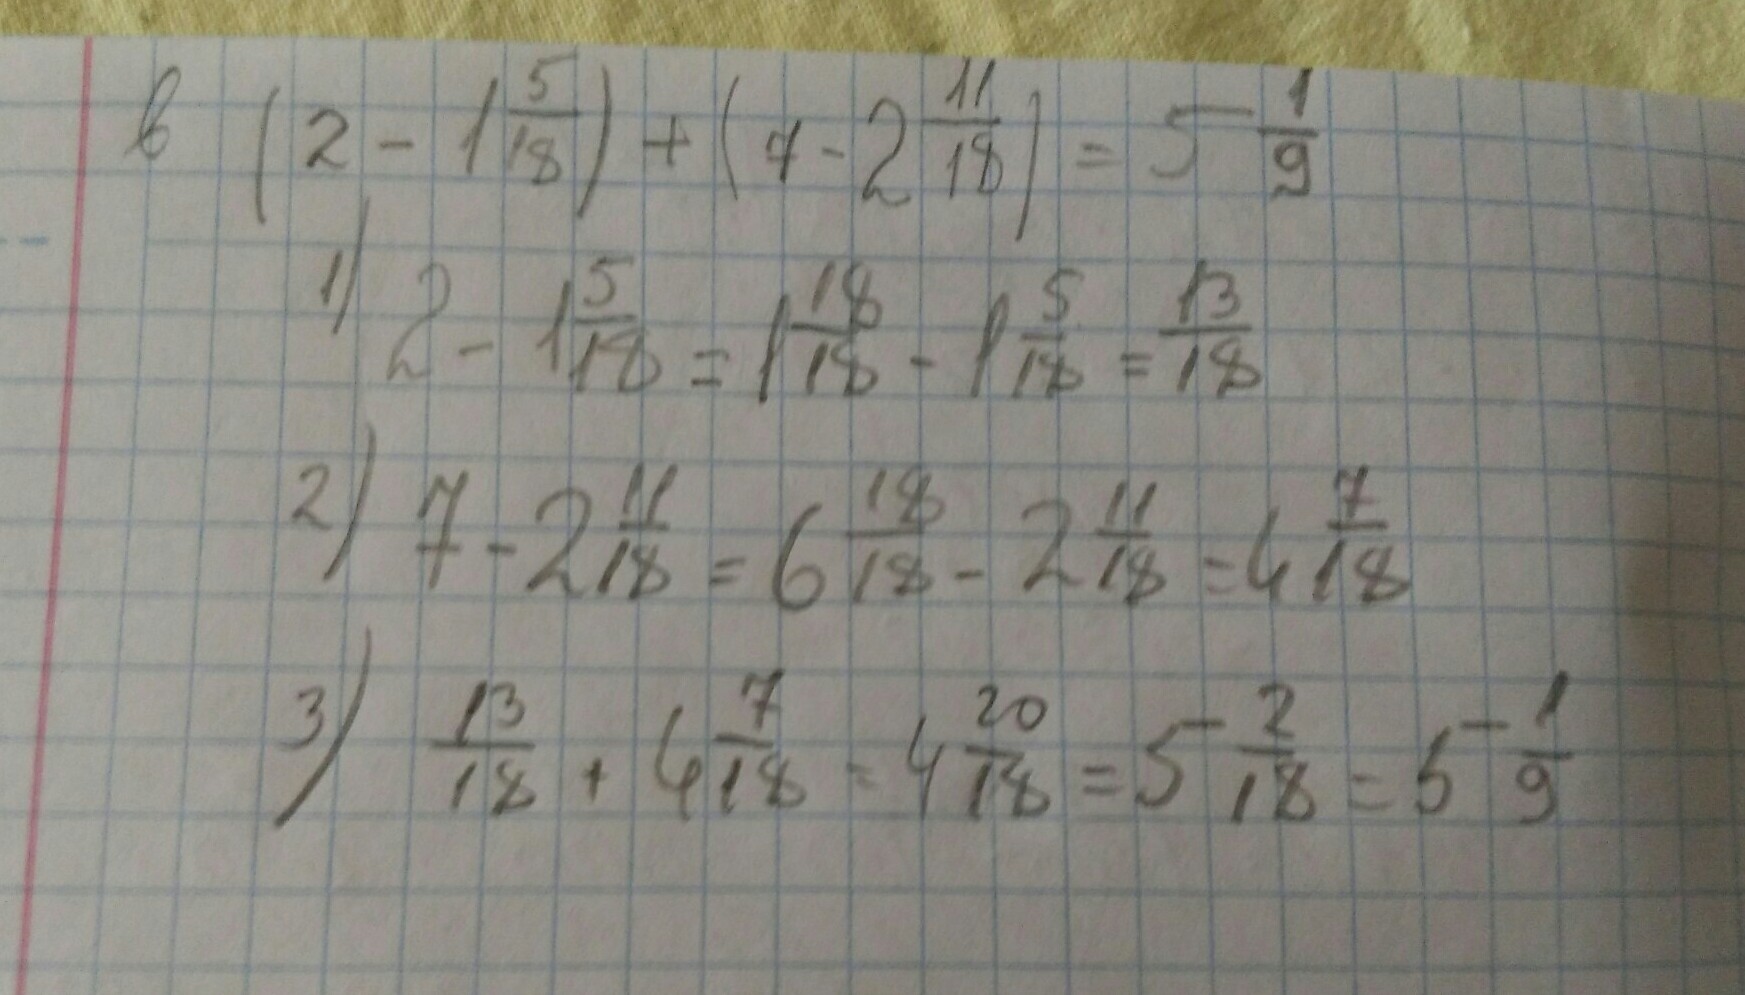 в (2 - 1 5/18) + (7 - 2 11/18) = 5 1/9
1) 2 - 1 5/18 = 1 18/18 - 1 5/18 = 13/18
2) 7 - 2 11/18 = 6 18/18 - 2 11/18 = 4 7/18
3) 13/18 + 4 7/18 = 4 20/18 = 5 2/18 = 5 1/9